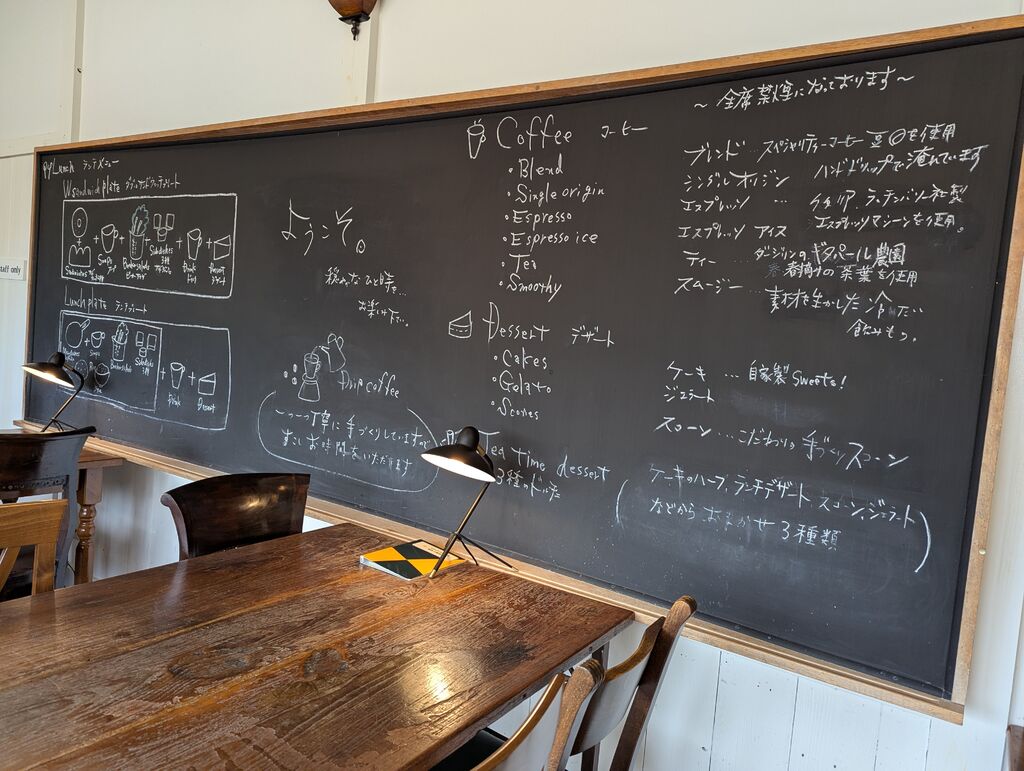 Lunch ランチメニュー
W sandwich plate ダブルサンドウィッチプレート
Sandwiches
Soup
Drink
Dessert
Lunch plate ランチプレート
Soup
Drink
Dessert
staff only
ようこそ。
お楽しみ下さい。
Drip coffee
一つ一つ丁寧に手づくりしていますので
すこしお時間をいただきます
Coffee コーヒー
・Blend
・Single origin
・Espresso
・Espresso ice
・Tea
・Smoothy
Dessert デザート
・Cakes
・Gelato
・Scones
Tea time dessert
3種の
~全席禁煙になっております~
ブレンド…スペシャリティーコーヒー豆のを使用
ハンドドリップで淹れています
シングルオリジン
エスプレッソ … イタリア ランチリオ社製
エスプレッソ アイス エスプレッソマシーンを使用。
ティー … ダージリンのギダパール農園
春摘みの茶葉を使用
スムージー … 素材を生かした冷たい
飲みもの。
ケーキ … 自家製 sweets!
ジェラート
スコーン …こだわりの手づくりスコーン
ケーキのハーフ、ランチデザート、スコーン、ジェラート
などから おまかせ 3種類